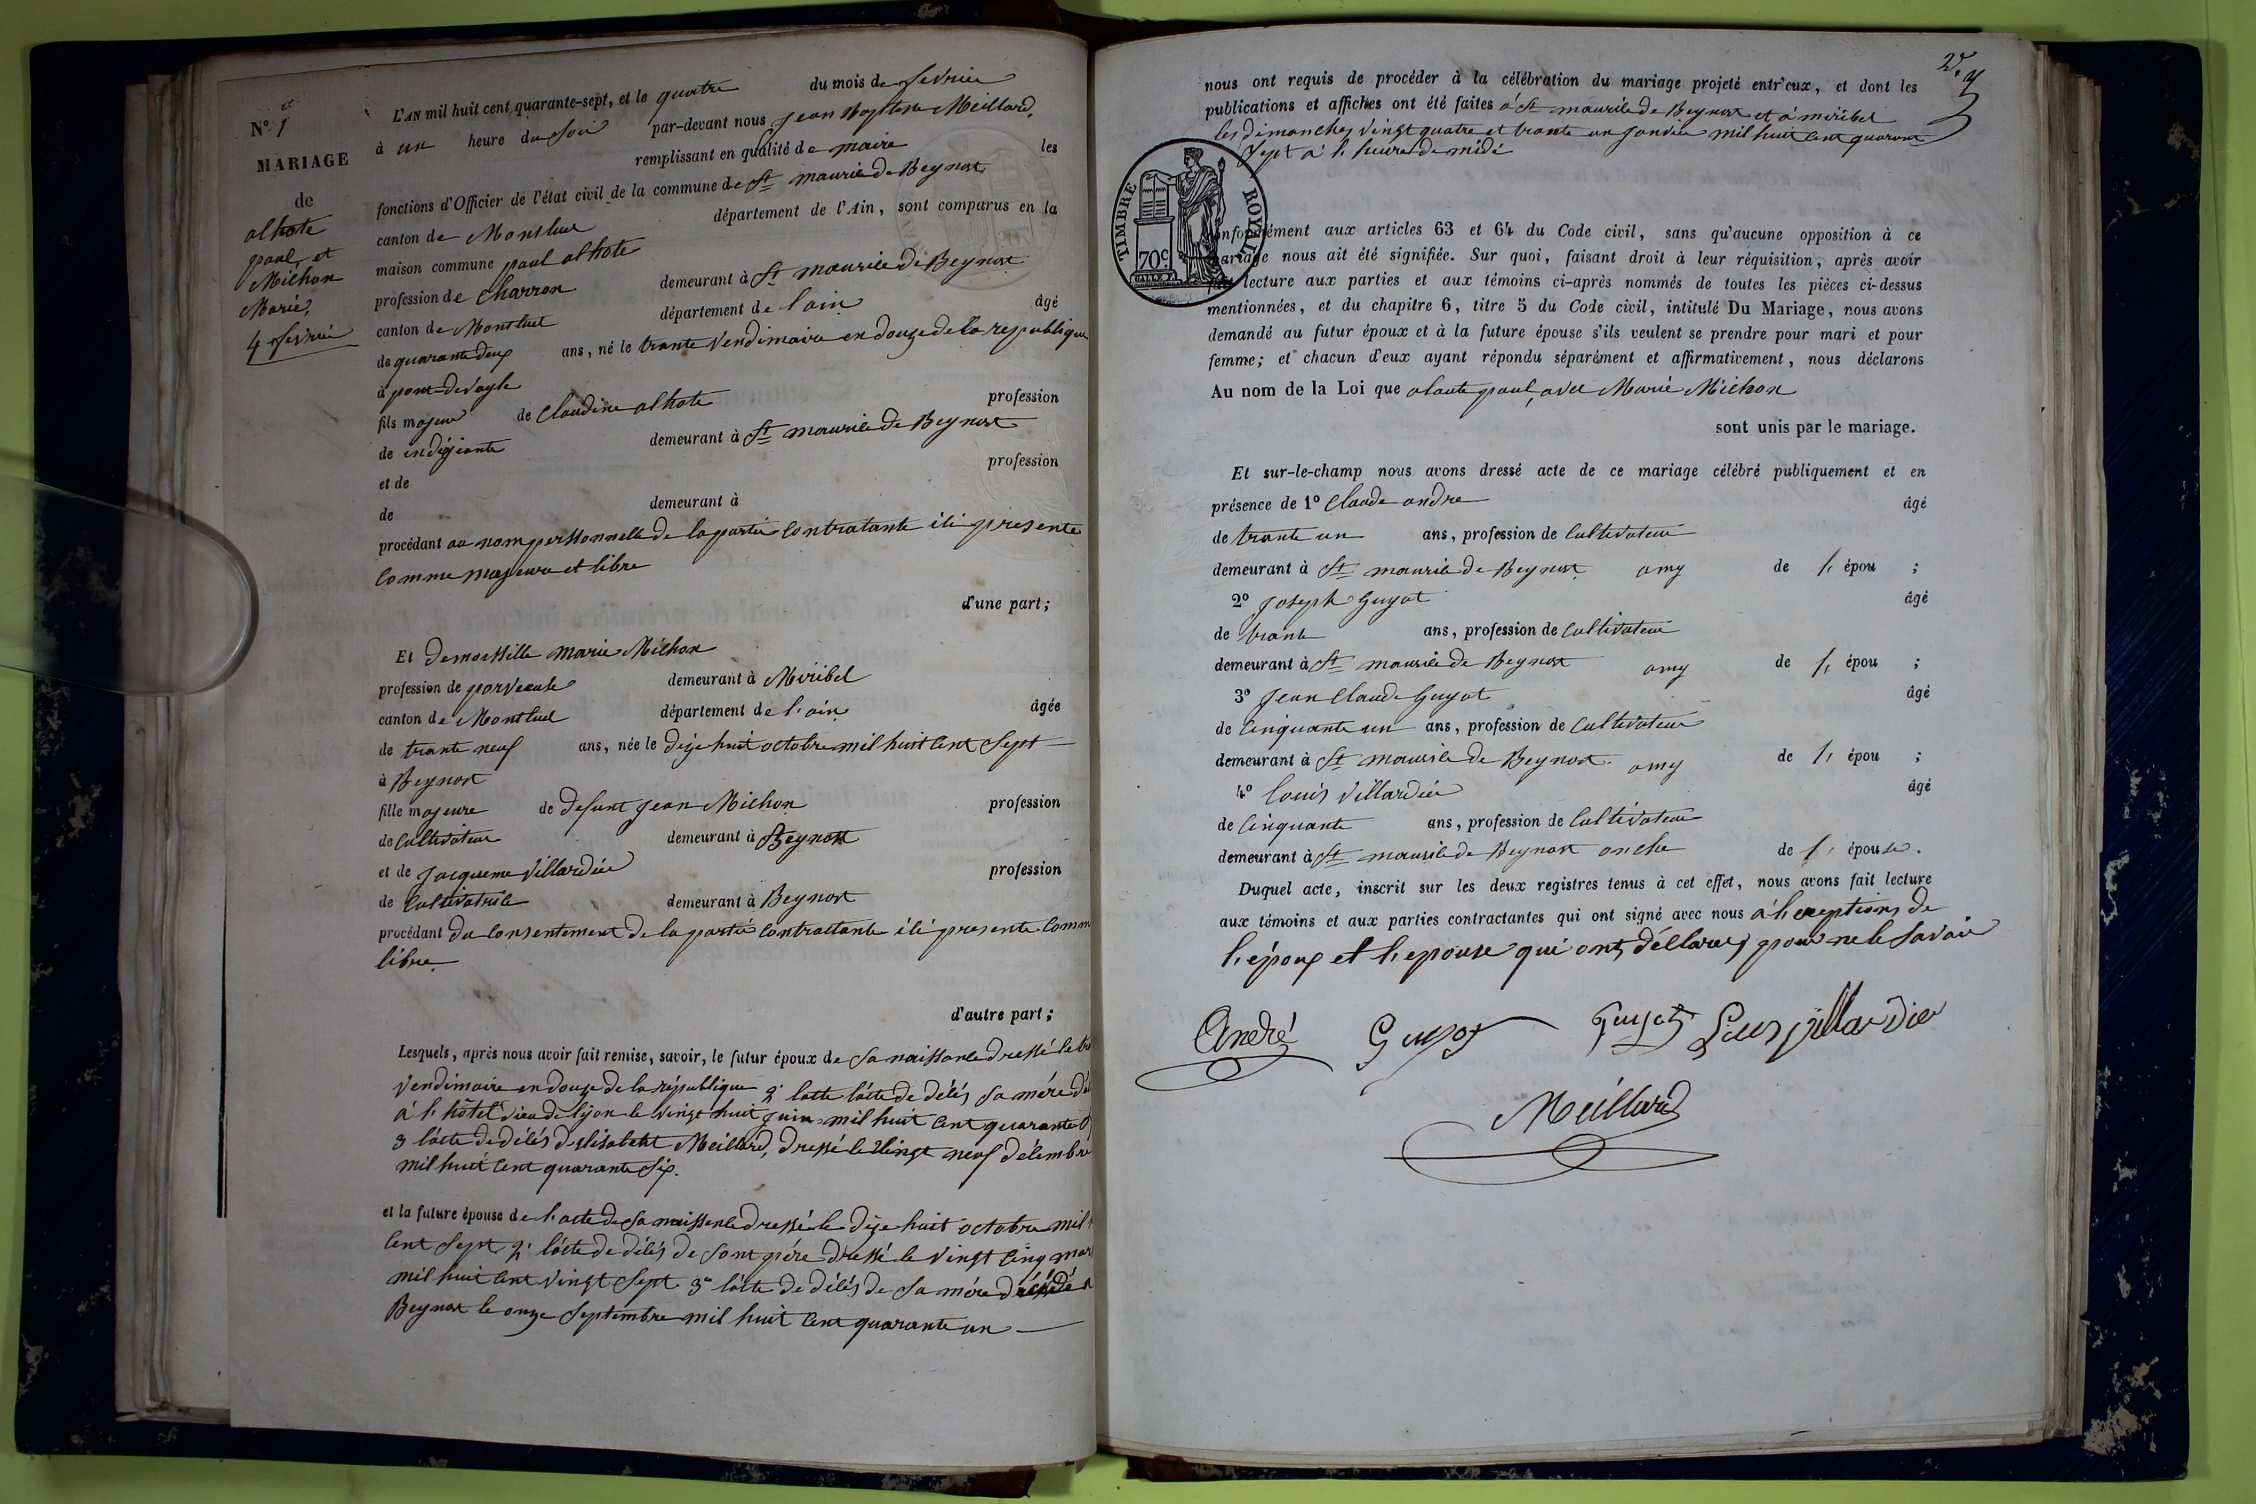 N° 1
MARIAGE
de
alhote
paul, et
Michon
Marie,
4 fevrié
L'AN mil huit cent quarante-sept, et le quatre du mois de fevrier
à un heure du soir par-devant nous Jean Baptiste Meillard,
remplissant en qualité de maire les
fonctions d'Officier de l'état civil de la commune de St maurice de Beynost
canton de Montluel département de l'Ain, sont comparus en la
maison commune paul alhote
profession de charron demeurant à St maurice de Beynost
canton de Montluel département de l'ain âgé
de quarante deux ans, né le trante vendimaire en douze de la republique
à pont de vayle
fils majeur de Claudine alhote profession
de indigiante demeurant à St maurice de Beynost
et de profession
de demeurant à
procédant au nom perssonnelle de la partie contratante ici presente
comme majeure et libre
d'une part;
Et demoiselle marie Michon
profession de demeurant à Miribel
canton de Montluel département de l'ain âgée
de trante neuf ans, née le dize huit octobre mil huit cent sept
à Beynost
fille majeure de defunt Jean Michon profession
de cultivateur demeurant à Beynost
et de Jacqueme Villardier profession
de cultivatrice demeurant à Beynost
procédant du consentement de la partie contractante ici presente comm
libre.
d'autre part;
Lesquels, après nous avoir fait remise, savoir, le futur époux de sa naissance dressé le
vendimaire en douze de la république 2° lacte de décés sa mére
à l'hôtel dieu de lyon le vingt huit juin mil huit cent quarante
3 lácte de décés délisabeht Meillard, dressé le vingt neuf décembre
mil huit cent quarante six.
et la future épouse de l'acte de sa naissance dressé le dize huit octobre mil
cent sept 2° lácte de décés de sont pére dressé le vingt cinq mar
mil huit cent vingt sept 3° lácte de décés de sa mére décédé
Beynost le onze septembre mil huit cent quarante un
nous ont requis de procéder à la célébration du mariage projeté entr'eux, et dont les
publications et affiches ont été faites á St maurice de Beynost et á miribel
les dimanches vingt quatre et trante un janvier mil huit cent quarante
sept á l'heure de midi
TIMBRE ROYAL
70c.
conformément aux articles 63 et 64 du Code civil, sans qu'aucune opposition à ce
mariage nous ait été signifiée. Sur quoi, faisant droit à leur réquisition, après avoir
lecture aux parties et aux témoins ci-après nommés de toutes les pièces ci-dessus
mentionnées, et du chapitre 6, titre 5 du Code civil, intitulé Du Mariage, nous avons
demandé au futur époux et à la future épouse s'ils veulent se prendre pour mari et pour
femme; et chacun d'eux ayant répondu séparément et affirmativement, nous déclarons
Au nom de la Loi que alaute paul, avec Marie Michon
sont unis par le mariage.
Et sur-le-champ nous avons dressé acte de ce mariage célébré publiquement et en
présence de 1° Claude andre âgé
de trante un ans, profession de cultivateur
demeurant à St maurice de Beynost amy de l' épou ;
2° Joseph Guyot âgé
de trante ans, profession de cultivateur
demeurant à St maurice de Beynost amy de l' épou ;
3° Jean Claude Guyot âgé
de cinquante un ans, profession de cultivateur
demeurant à St maurice de Beynost amy de l' épou ;
4° Louis Villardier âgé
de cinquante ans, profession de cultivateur
demeurant à St maurice de Beynost oncle de l' épouse.
Duquel acte, inscrit sur les deux registres tenus à cet effet, nous avons fait lecture
aux témoins et aux parties contractantes qui ont signé avec nous á l'exceptions de
l'époux et l'epouse qui ont déclarer pour ne le savoir
André Guyot Guyot Louis villardier
Meillard